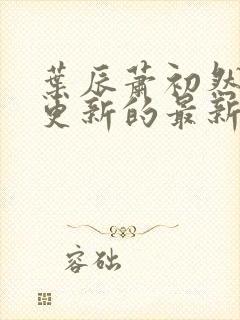 葉辰蕭初然
更新的最新
容础